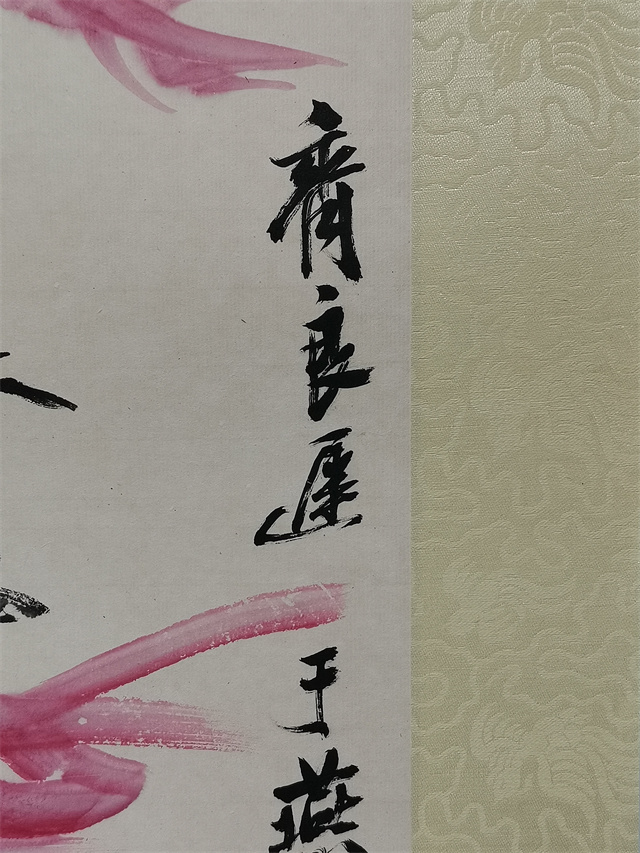 齊良遲于燕